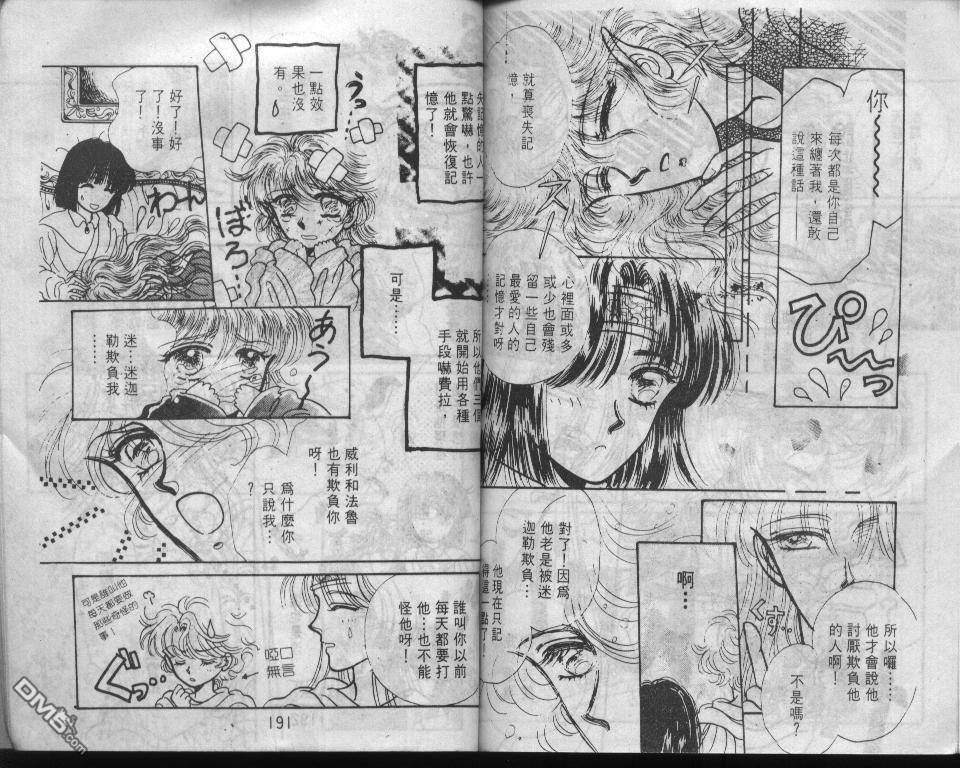 你
每次都是你自己
來纏著我，還敢
說這種話──
就算喪失記
憶，
ぴ〜〜っ
心裡面或多
或少也會殘
留一些自己
最愛的人的
記憶才對呀
……
所以囉……
他才會說他
討厭欺負他
的人啊！
不是嗎？
くす…
啊…
對了！因為
他老是被迷
迦勒欺負…
他現在只記
得這一點了！
失記憶的人一
點驚嚇，也許
他就會恢復記
憶了！
一點效
果也沒
有。
うっ…
ぼろ…
好了！好
了！沒事
了！
わーん
可是……
所以他們三個
就開始用各種
手段嚇費拉，
あうっ
迷…迷迦
勒欺負我
……
威利和法魯
也有欺負你
呀！
為什麼你
只說我…
？
誰叫你以前
每天都要打
他…也不能
怪他呀！
啞口
無言
可是誰叫他
每天都要做
那些奇怪的
事！
ぐっ…
191
DM5.com